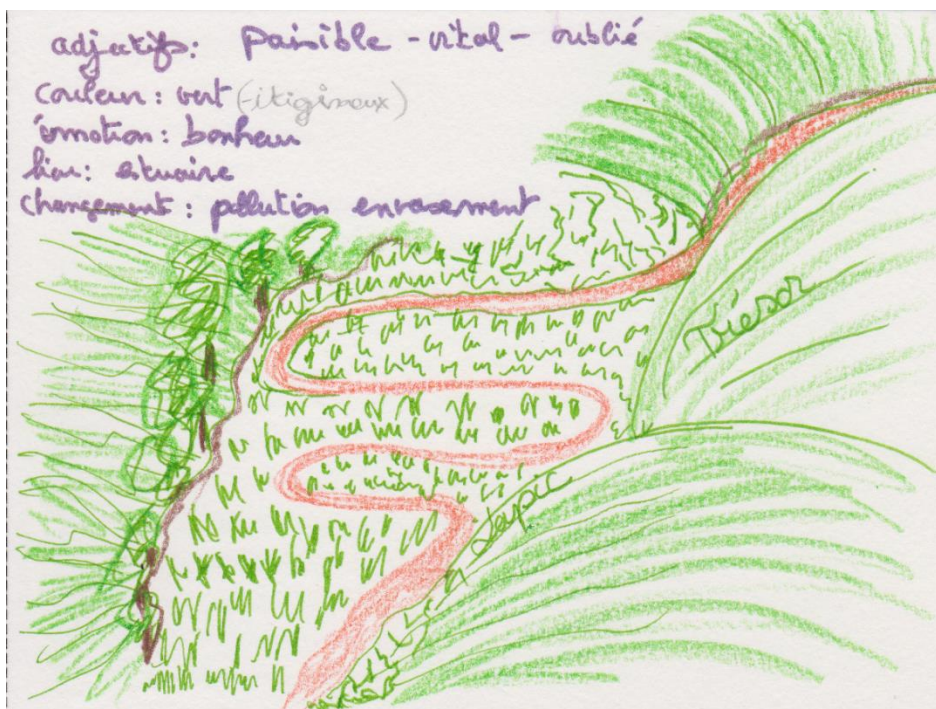 adjectifs: paisible - vital - oublié
couleur: vert
émotion: bonheur
lieu: estuaire
changement: pollution envasement
Trésor
Tapir